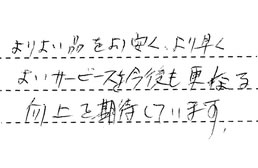 よりよい品をより安く、より早く
よいサービスを今後も更なる
向上を期待しています。